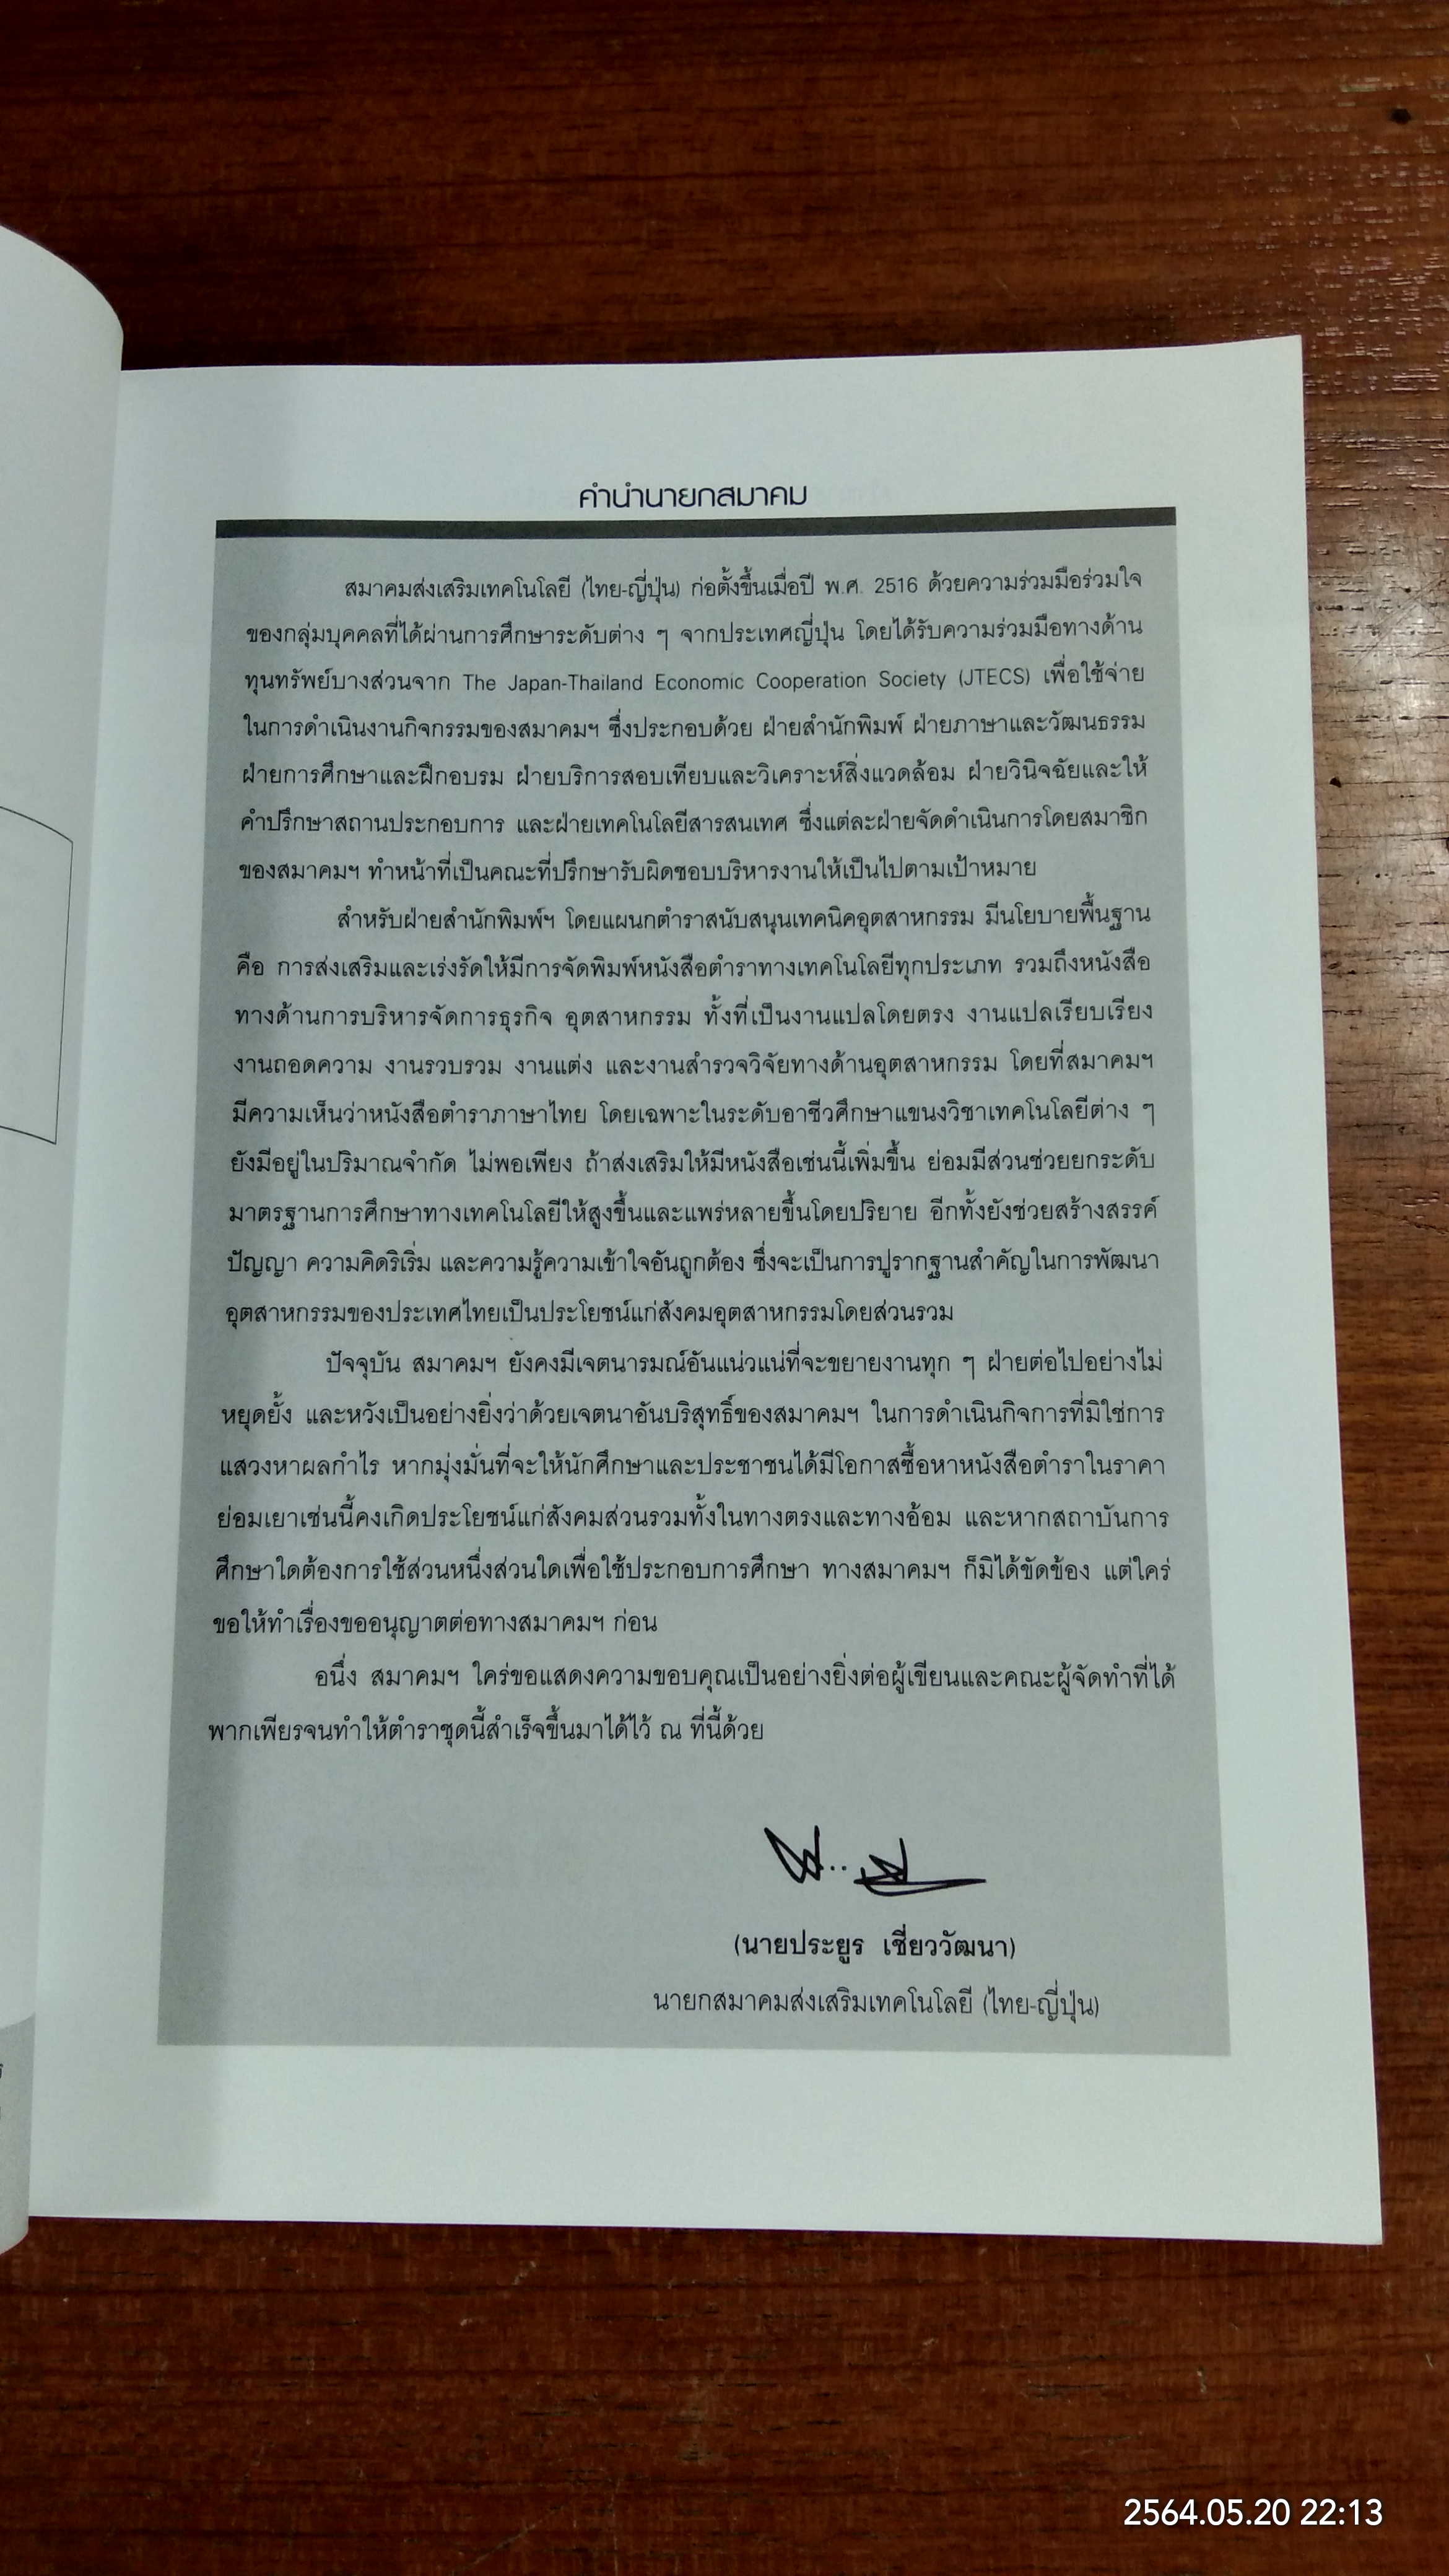 คำนำนายกสมาคม
สมาคมส่งเสริมเทคโนโลยี (ไทย-ญี่ปุ่น) ก่อตั้งขึ้นเมื่อปี พ.ศ. 2516 ด้วยความร่วมมือร่วมใจ
ของกลุ่มบุคคลที่ได้ผ่านการศึกษาระดับต่าง ๆ จากประเทศญี่ปุ่น โดยได้รับความร่วมมือทางด้าน
ทุนทรัพย์บางส่วนจาก The Japan-Thailand Economic Cooperation Society (JTECS) เพื่อใช้จ่าย
ในการดำเนินงานกิจกรรมของสมาคมฯ ซึ่งประกอบด้วย ฝ่ายสำนักพิมพ์ ฝ่ายภาษาและวัฒนธรรม
ฝ่ายการศึกษาและฝึกอบรม ฝ่ายบริการสอบเทียบและวิเคราะห์สิ่งแวดล้อม ฝ่ายวินิจฉัยและให้
คำปรึกษาสถานประกอบการ และฝ่ายเทคโนโลยีสารสนเทศ ซึ่งแต่ละฝ่ายจัดดำเนินการโดยสมาชิก
ของสมาคมฯ ทำหน้าที่เป็นคณะที่ปรึกษารับผิดชอบบริหารงานให้เป็นไปตามเป้าหมาย
สำหรับฝ่ายสำนักพิมพ์ฯ โดยแผนกตำราสนับสนุนเทคนิคอุตสาหกรรม มีนโยบายพื้นฐาน
คือ การส่งเสริมและเร่งรัดให้มีการจัดพิมพ์หนังสือตำราทางเทคโนโลยีทุกประเภท รวมถึงหนังสือ
ทางด้านการบริหารจัดการธุรกิจ อุตสาหกรรม ทั้งที่เป็นงานแปลโดยตรง งานแปลเรียบเรียง
งานถอดความ งานรวบรวม งานแต่ง และงานสำรวจวิจัยทางด้านอุตสาหกรรม โดยที่สมาคมฯ
มีความเห็นว่าหนังสือตำราภาษาไทย โดยเฉพาะในระดับอาชีวศึกษาแขนงวิชาเทคโนโลยีต่าง ๆ
ยังมีอยู่ในปริมาณจำกัด ไม่พอเพียง ถ้าส่งเสริมให้มีหนังสือเช่นนี้เพิ่มขึ้น ย่อมมีส่วนช่วยยกระดับ
มาตรฐานการศึกษาทางเทคโนโลยีให้สูงขึ้นและแพร่หลายขึ้นโดยปริยาย อีกทั้งยังช่วยสร้างสรรค์
ปัญญา ความคิดริเริ่ม และความรู้ความเข้าใจอันถูกต้อง ซึ่งจะเป็นการปูรากฐานสำคัญในการพัฒนา
อุตสาหกรรมของประเทศไทยเป็นประโยชน์แก่สังคมอุตสาหกรรมโดยส่วนรวม
ปัจจุบัน สมาคมฯ ยังคงมีเจตนารมณ์อันแน่วแน่ที่จะขยายงานทุก ๆ ฝ่ายต่อไปอย่างไม่
หยุดยั้ง และหวังเป็นอย่างยิ่งว่าด้วยเจตนาอันบริสุทธิ์ของสมาคมฯ ในการดำเนินกิจการที่มิใช่การ
แสวงหาผลกำไร หากมุ่งมั่นที่จะให้นักศึกษาและประชาชนได้มีโอกาสซื้อหาหนังสือตำราในราคา
ย่อมเยาเช่นนี้คงเกิดประโยชน์แก่สังคมส่วนรวมทั้งในทางตรงและทางอ้อม และหากสถาบันการ
ศึกษาใดต้องการใช้ส่วนหนึ่งส่วนใดเพื่อใช้ประกอบการศึกษา ทางสมาคมฯ ก็มิได้ขัดข้อง แต่ใคร่
ขอให้ทำเรื่องขออนุญาตต่อทางสมาคมฯ ก่อน
อนึ่ง สมาคมฯ ใคร่ขอแสดงความขอบคุณเป็นอย่างยิ่งต่อผู้เขียนและคณะผู้จัดทำที่ได้
พากเพียรจนทำให้ตำราชุดนี้สำเร็จขึ้นมาได้ไว้ ณ ที่นี้ด้วย
(นายประยูร เชี่ยววัฒนา)
นายกสมาคมส่งเสริมเทคโนโลยี (ไทย-ญี่ปุ่น)
2564.05.20 22:13